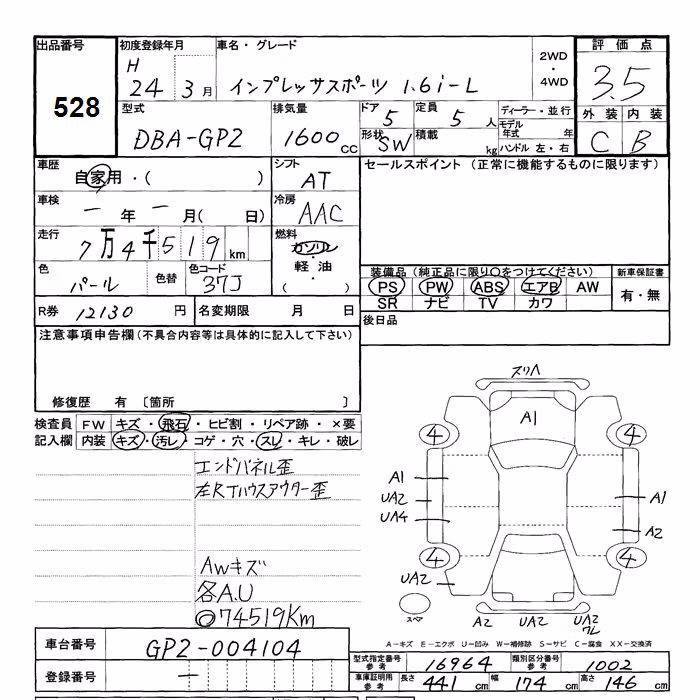 出品番号 初度登録年月 車名・グレード 2WD・4WD 評価点
528 H 24 3月 インプレッサスポーツ 1.6i-L 3.5
型式 排気量 ドア 定員 ディーラー・並行 外装 内装
DBA-GP2 1600cc 5 5人 モデル年式 年 C B
形状 SW 積載 kg ハンドル 左・右
車歴 自家用・( ) シフト AT セールスポイント (正常に機能するものに限ります)
車検 一年 一月( 日) 冷房 AAC
走行 7万4千519km 燃料 ガソリン・軽油・( )
色 パール 色替 色コード 37J 装備品 (純正品に限り○をつけてください) 新車保証書
PS PW ABS エアB AW 有・無
SR ナビ TV カワ
R券 12130円 名変期限 月 日 後日品
注意事項申告欄(不具合内容等は具体的に記入して下さい)
修復歴 有 〔箇所 〕
検査員 FW キズ・飛石・ヒビ割・リペア跡・×要
記入欄 内装 キズ・汚レ・コゲ・穴・スレ・キレ・破レ
エンドパネル歪
左RTハウスアウター歪
AWキズ
各A.U
◎74519Km
スリヘ
A1
4 4
A1
UA2 A1
UA4 A2
4 4
UA2
スペア A2 UA2 UA2
ワレ
A-キズ E-エクボ U-凹み W-補修跡 S-サビ C-腐食 XX-交換済
車台番号 GP2-004104
登録番号 一
型式指定番号 参考 16964 類別区分番号 参考 1002
車庫証明用 参考 長さ 441cm 幅 174cm 高さ 146cm